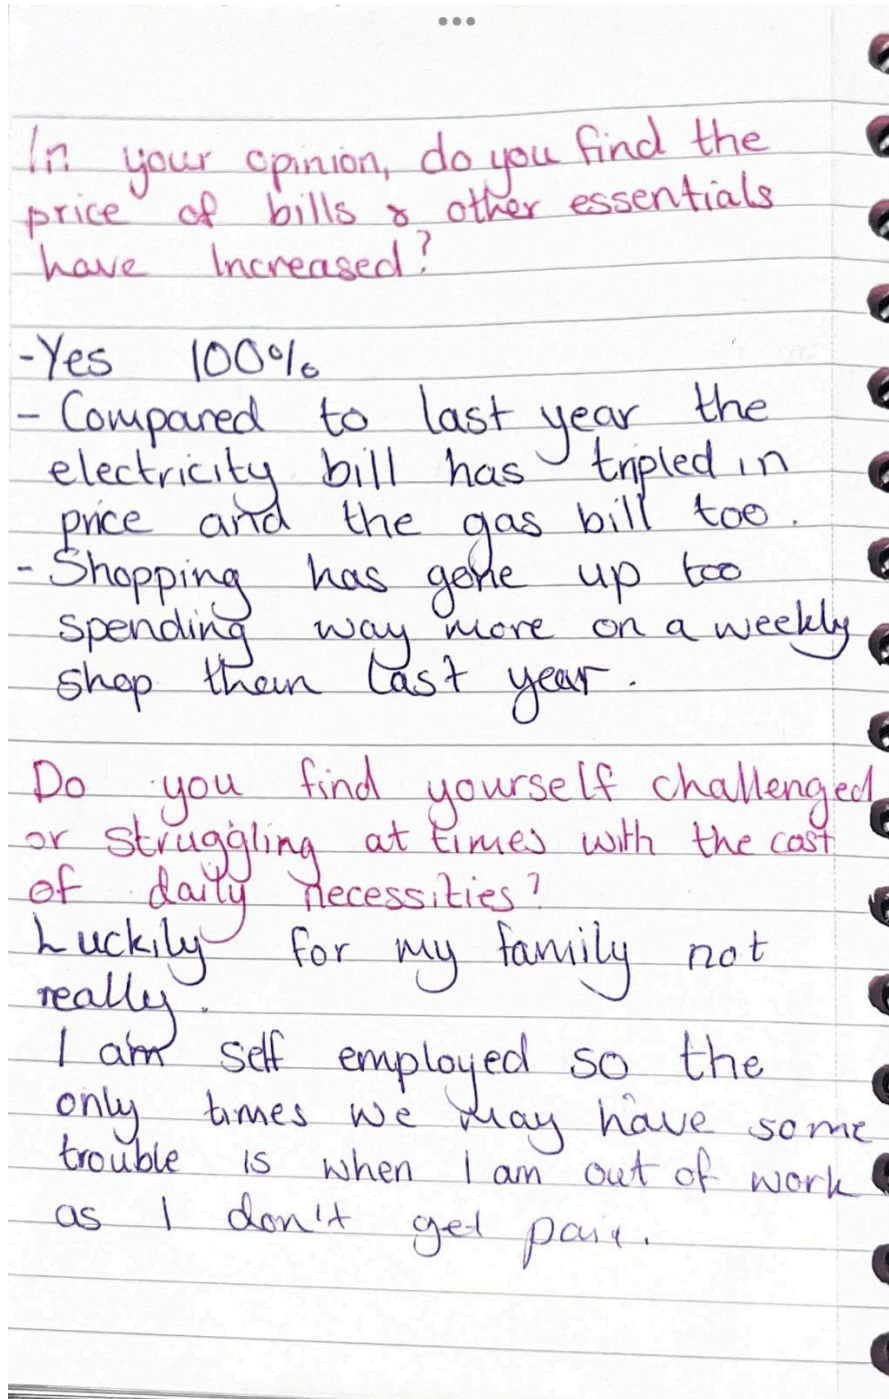 In your opinion, do you find the
price of bills & other essentials
have Increased?
-Yes 100%
- Compared to last year the
electricity bill has tripled in
price and the gas bill too.
- Shopping has gone up too
spending way more on a weekly
shop then last year.
Do you find yourself challenged
or struggling at times with the cost
of daily necessities?
Luckily for my family not
really.
I am self employed so the
only times we may have some
trouble is when I am out of work
as I don't get paid.